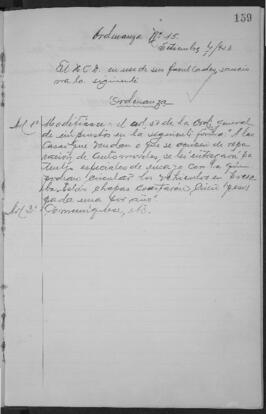 159
Ordenanza Nº 15.
Setiembre
El H.C.D. en uso de sus facultades, sancio
na la siguiente
Ordenanza
Art. 1º Modifícase el art. 51 de la Ord. general
de impuestos en la siguiente forma: A las
Casas que vendan o que se ocupen de repa
ración de automóviles, se les entregará pa
tentes especiales de ensayo con la que
podrán circular los vehículos en
Estas chapas costarán cinco pesos
cada una por año.
Art. 2º Comuníquese, etc.